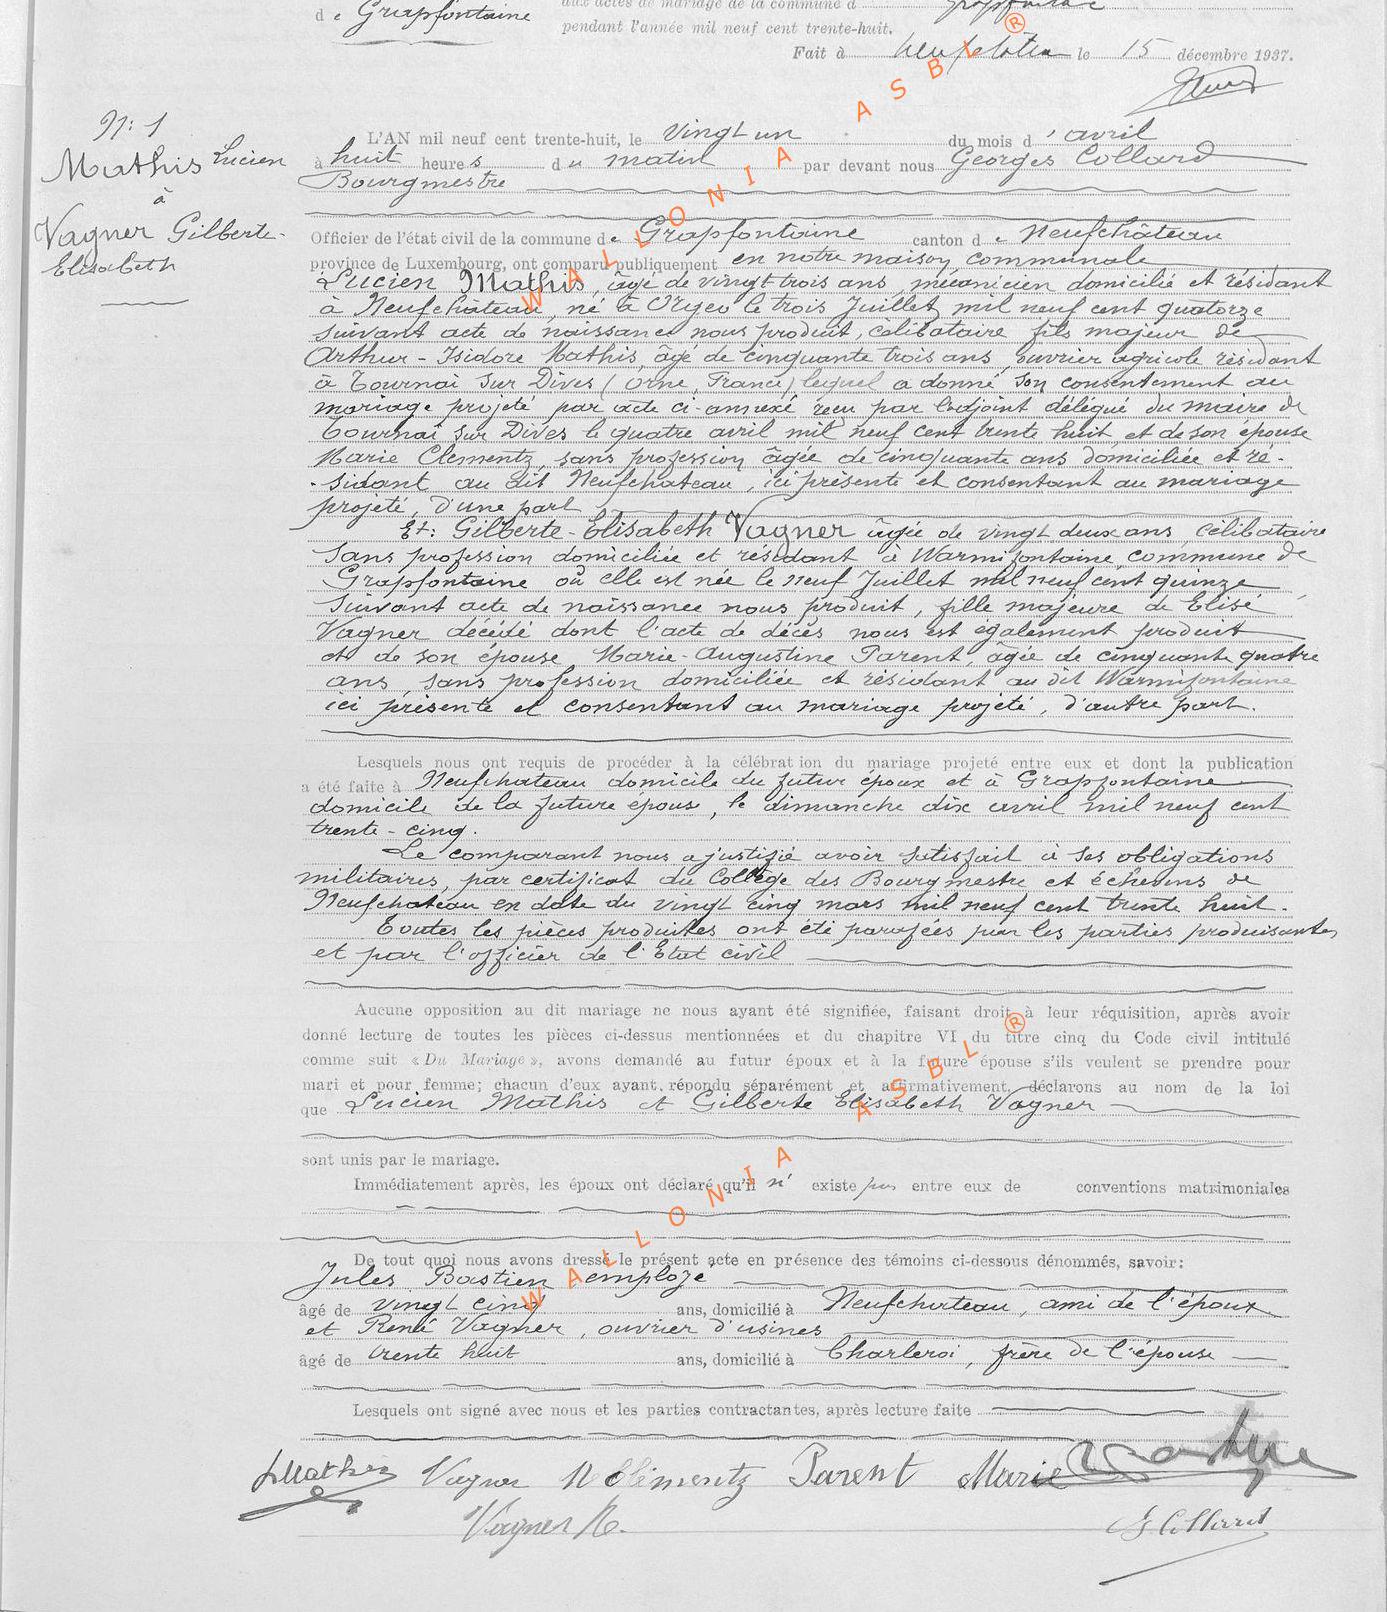 de Grapfontaine
aux actes de mariage de la commune d Grapfontaine
pendant l'année mil neuf cent trente-huit.
Fait à Neufchâteau le 15 décembre 1937.
N: 1
Mathis Lucien
à
Vagner Gilberte-
Elisabeth
L'AN mil neuf cent trente-huit, le vingt un du mois d'avril
à huit heures du matin par devant nous Georges Collard
Bourgmestre
Officier de l'état civil de la commune de Grapfontaine canton de Neufchâteau
province de Luxembourg, ont comparu publiquement en notre maison communale
Lucien Mathis, âgé de vingt trois ans, mécanicien domicilié et résidant
à Neufchâteau, né à le trois Juillet mil neuf cent quatorze
suivant acte de naissance nous produit, célibataire fils majeur de
Arthur-Isidore Mathis, âgé de cinquante trois ans, ouvrier agricole résidant
à Tournai sur Dives (Orne, France) lequel a donné son consentement au
mariage projeté par acte ci-annexé reçu par l'adjoint délégué du maire de
Tournai sur Dives le quatre avril mil neuf cent trente huit, et de son épouse
Marie Clementz, sans profession âgée de cinquante ans domiciliée et ré-
-sidant au dit Neufchateau, ici présente et consentant au mariage
projeté, d'une part
Et: Gilberte-Elisabeth Vagner âgée de vingt deux ans, célibataire
sans profession domiciliée et résidant à Warmifontaine, commune de
Grapfontaine où elle est née le neuf Juillet mil neuf cent quinze
suivant acte de naissance nous produit, fille majeure de Elisé
Vagner décédé dont l'acte de décès nous est également produit
et de son épouse Marie-Augustine Parent, âgée de cinquante quatre
ans, sans profession domiciliée et résidant au dit Warmifontaine
ici présente et consentant au mariage projeté, d'autre part.
Lesquels nous ont requis de procéder à la célébration du mariage projeté entre eux et dont la publication
a été faite à Neufchateau domicile du futur époux et à Grapfontaine
domicile de la future épous, le dimanche dix avril mil neuf cent
trente-cinq.
Le comparant nous a justifié avoir satisfait à ses obligations
militaires, par certificat du Collège des Bourgmestre et échevins de
Neufchateau en date du vingt cinq mars mil neuf cent trente huit.
Toutes les pièces produites ont été parafées par les parties produisantes
et par l'officier de l'Etat civil
Aucune opposition au dit mariage ne nous ayant été signifiée, faisant droit à leur réquisition, après avoir
donné lecture de toutes les pièces ci-dessus mentionnées et du chapitre VI du titre cinq du Code civil intitulé
comme suit « Du Mariage », avons demandé au futur époux et à la future épouse s'ils veulent se prendre pour
mari et pour femme; chacun d'eux ayant répondu séparément et affirmativement, déclarons au nom de la loi
que Lucien Mathis et Gilberte Elisabeth Vagner
sont unis par le mariage.
Immédiatement après, les époux ont déclaré qu'il n' existe pas entre eux de conventions matrimoniales
De tout quoi nous avons dressé le présent acte en présence des témoins ci-dessous dénommés, savoir:
Jules Bastien employé
âgé de vingt cinq ans, domicilié à Neufchateau, ami de l'époux
et René Vagner, ouvrier d'usines
âgé de trente huit ans, domicilié à Charleroi, frère de l'épouse
Lesquels ont signé avec nous et les parties contractantes, après lecture faite
LMathis Vagner M Clémentz Parent Marie
Vagner R. G Collard
WALLONIA ASBL ®
WALLONIA ASBL ®